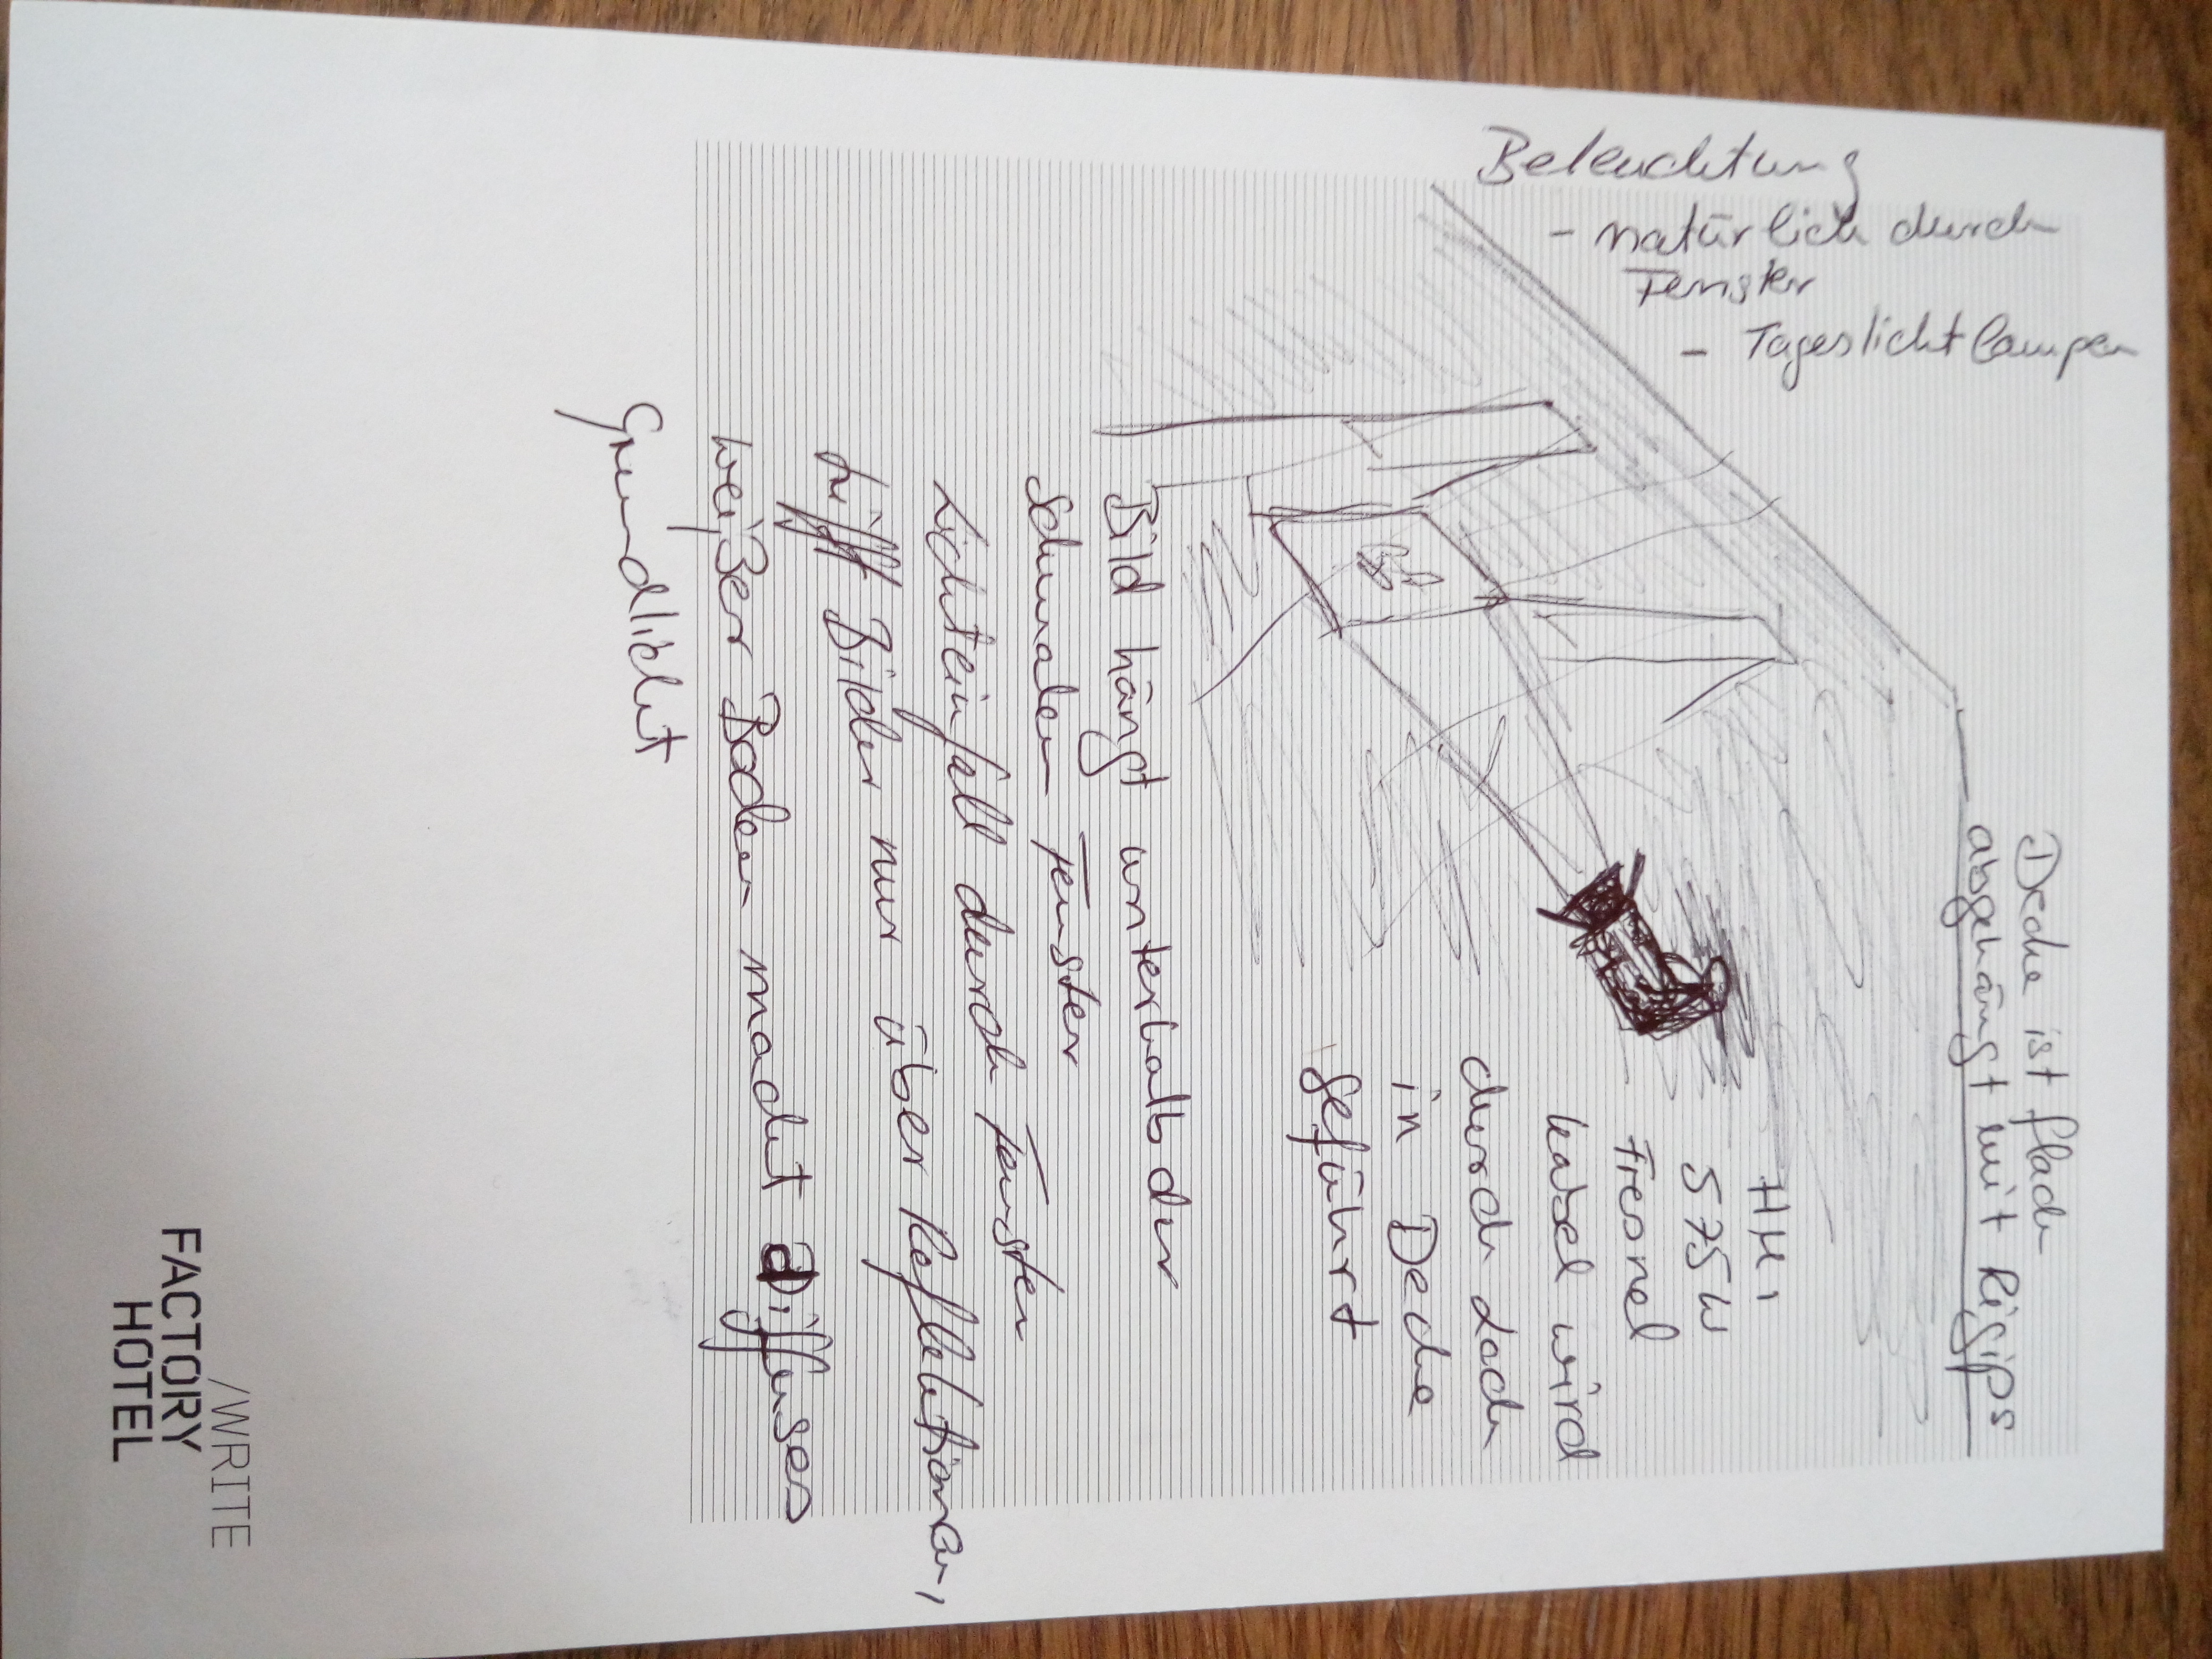 Beleuchtung
- natürlich durch
Fenster
- Tageslichtlampen
Decke ist flach
abgehängt mit Rigips
HMI
575W
Fresnel
Kabel wird
durch Loch
in Decke
geführt
Bild hängt unterhalb der
schmalen Fenster
Lichteinfall durch Fenster
trifft Bilder nur über Reflektionen,
weißer Boden macht diffuses
Grundlicht
/WRITE
FACTORY
HOTEL